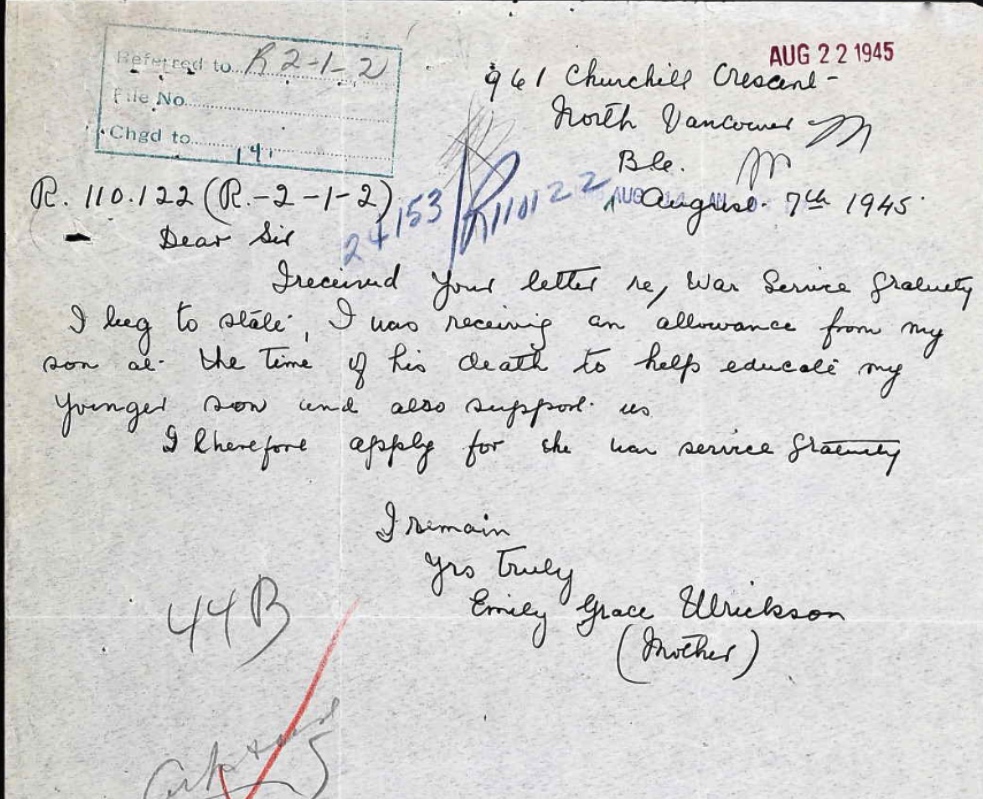 AUG 22 1945
Referred to R 2-1-2
File No.
Chgd to
961 Churchill Crescent-
North Vancouver
B.C.
August 7th 1945
R. 110.122 (R.-2-1-2)
24153
R110122
Dear Sir
I received your letter re, War Service Gratuity
I beg to state, I was receiving an allowance from my
son at the time of his death to help educate my
younger son and also support us
I therefore apply for the war service gratuity
I remain
Yrs Truly
Emily Grace Ulrickson
(Mother)
44B